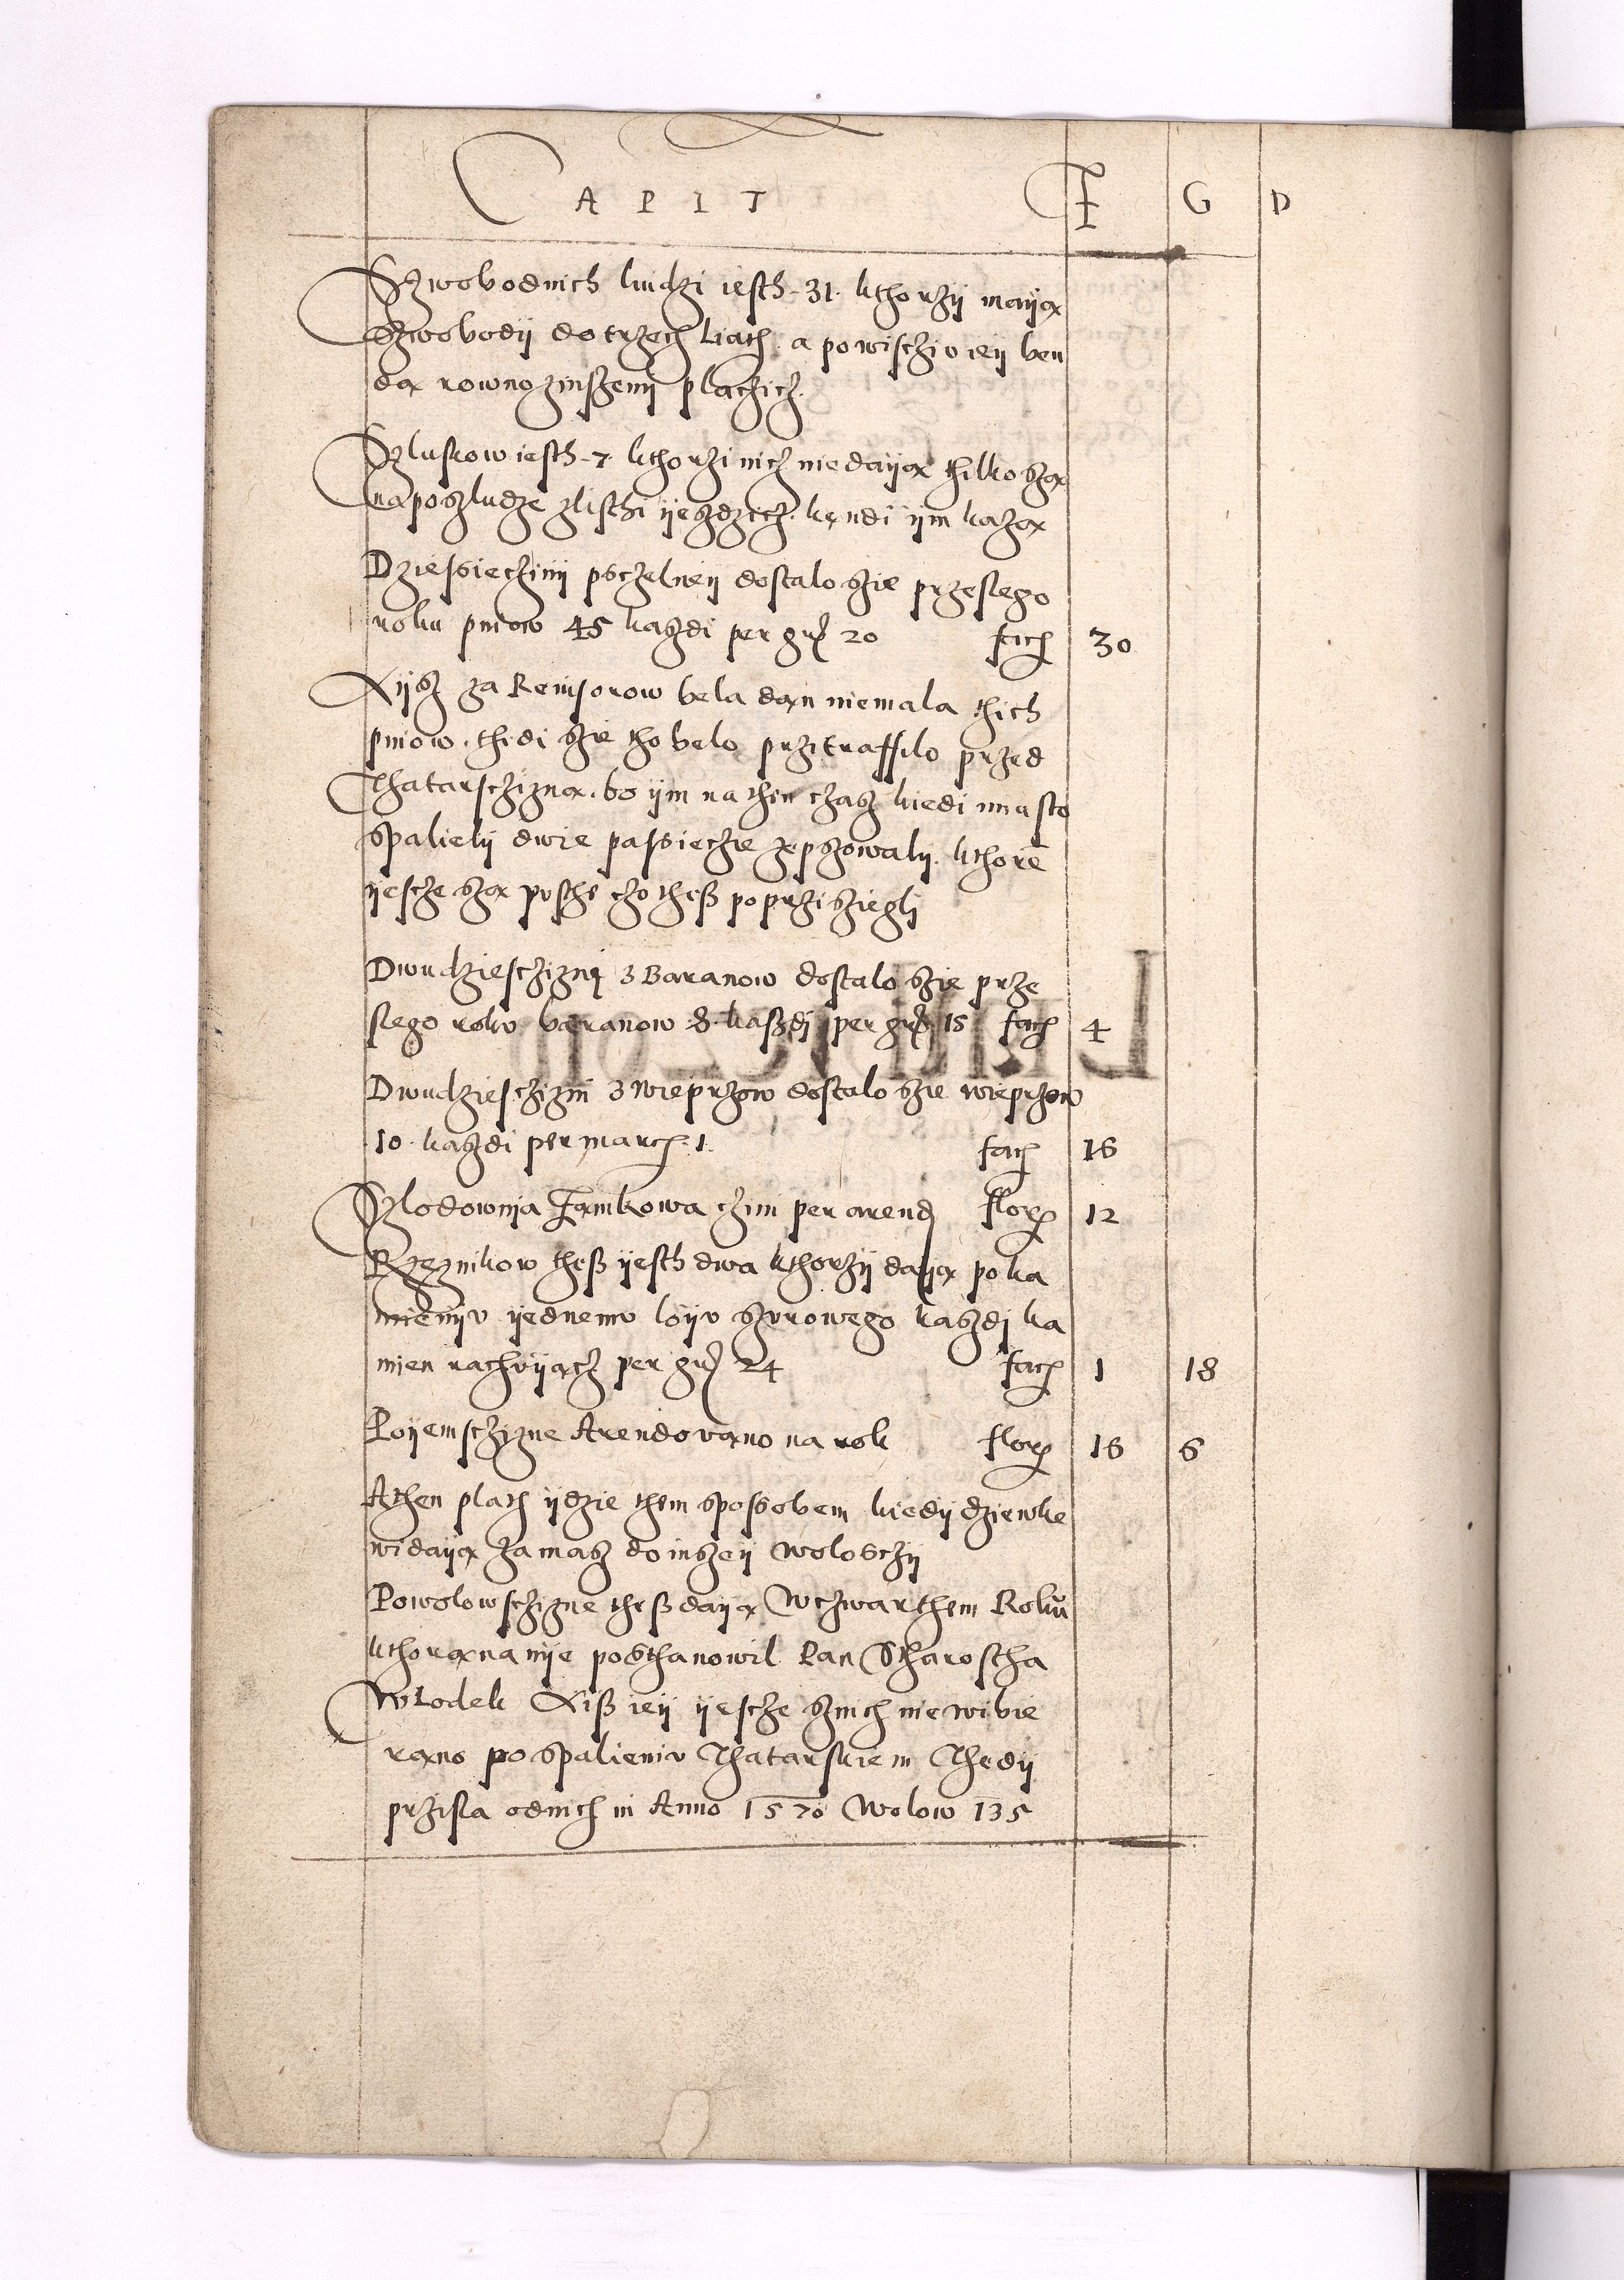 CAPIT F G D
Szwobodnich liudzi iesth 31. kthorzÿ maÿą
Szwobodÿ do trzech liath. a po wisczivieÿ ben
dą rowno zinszemÿ placzicz.
Sluskow iesth 7. kthorzi nicz nie daÿą thilko szą
na poszludze zlisthi ÿezdzicz. kędi ÿm każą
Dziessieczinÿ psczelneÿ dostalo szie przeslego
roku pniow 45 kazdi per grꝭ 20 facꝭ 30
Xiÿsz za Remisorow bela dan niemala thich
pniow. thedi szie tho belo przitraffilo przed
Thatarsczizną. bo ÿm na then czasz kiedi miasto
Spalielÿ dwie passieczie zepszowalÿ. kthore
ÿescze szą
Dwudziescziznÿ 3 Baranow dostalo szie prze
slego roku baranow 8. kaszdÿ per grꝭ 15 facꝭ 4
Dwudziesczizni 3 Wieprzow dostalo szie wieprzow
10. kazdi per marcꝭ 1. facꝭ 16
Szlodownia Zamkowa czini per arendꝭ florꝭ 12
Rzeznikow thesz ÿesth dwa kthorzÿ daÿą po ka
mieniÿv ÿednemv loÿv szvrowego kaszdÿ ka
mien rachvÿącz per grꝭ 24 facꝭ 1 18
Poÿemsczizne Arendovano na rok florꝭ 16 6
A then plath ÿdzie them sposobem kiedÿ dziewke
widaÿą za masz do inszeÿ Woloschÿ
Powolowsczizne thesz daÿą W czwarthem Roku
kthorą na nie posthanowil Pan Stharostha
Wlodek Xisz ieÿ ÿescze sznich nie wibie
rano po Spalieniv Thatarskiem Thedÿ
przisla od nich in Anno 1570 Wolow 135